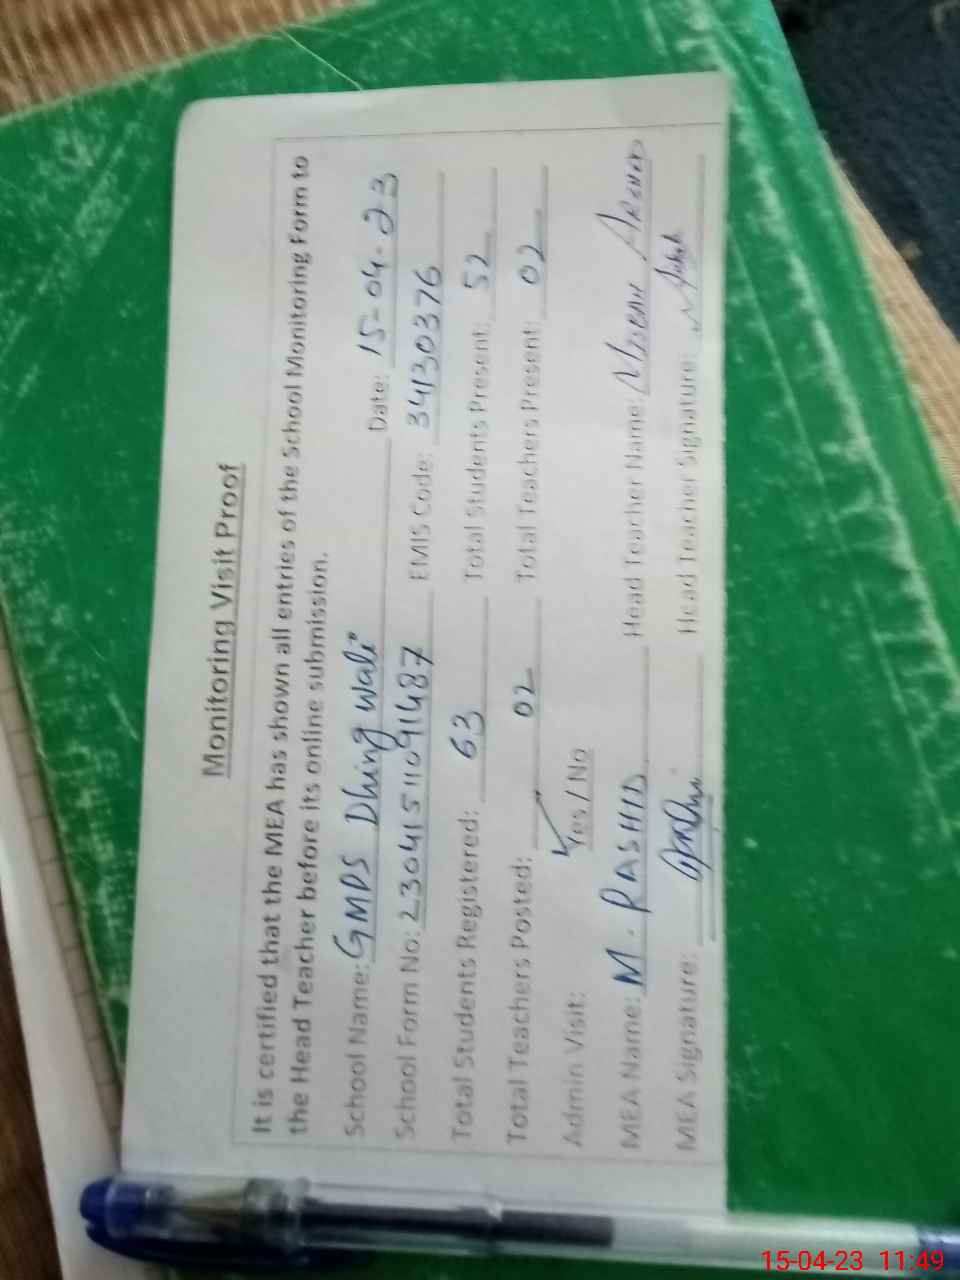 Monitoring Visit Proof
It is certified that the MEA has shown all entries of the School Monitoring Form to
the Head Teacher before its online submission.
School Name: GMPS Dhing Wali Date: 15-04-23
School Form No: 23041511091487 EMIS Code: 34130376
Total Students Registered: 63 Total Students Present: 52
Total Teachers Posted: 02 Total Teachers Present: 02
Admin Visit: Yes / No
MEA Name: M. RASHID Head Teacher Name:
MEA Signature: Head Teacher Signature:
15-04-23 11:49